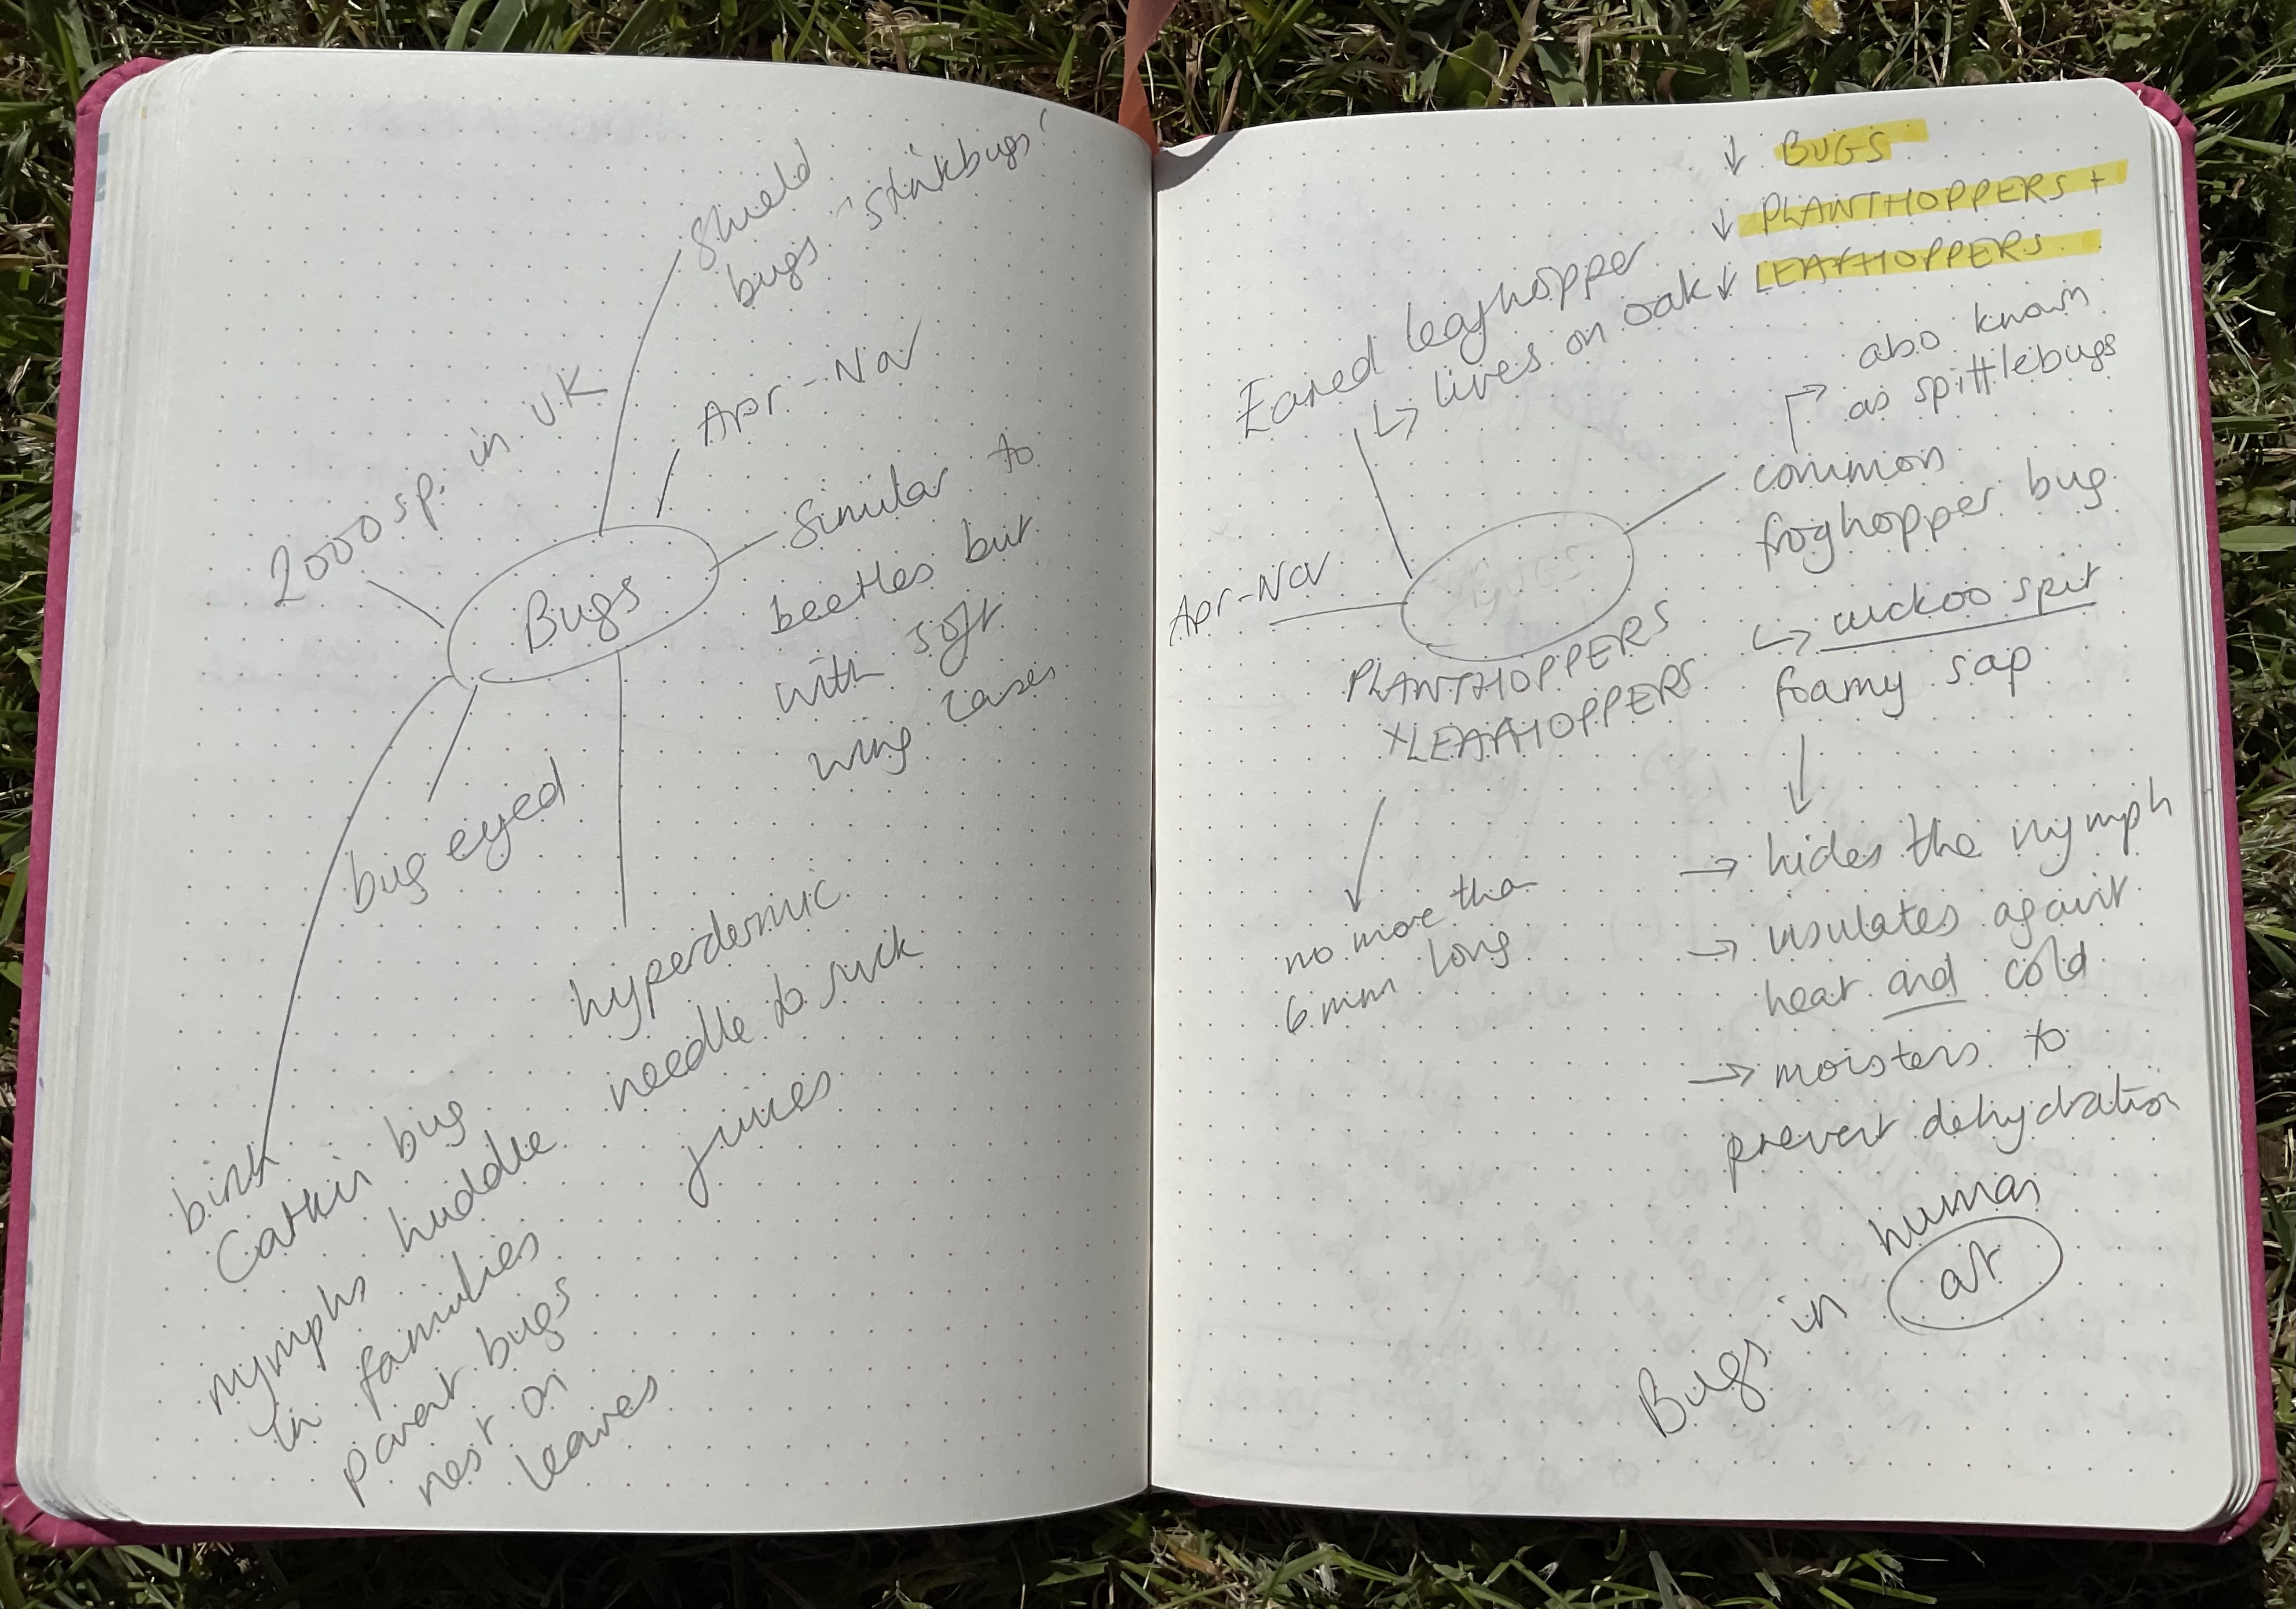 shield
bugs 'stinkbugs'
Apr-Nov
2000 sp. in UK
Similar to
beetles but
with soft
wing cases
Bugs
bug eyed
hyperdermic
needle to suck
juices
birch
Catkin bug
nymphs huddle
in families
parent bugs
nest on
leaves
↓ BUGS
↓ PLANTHOPPERS +
↓ LEAFHOPPERS
Eared leafhopper
↳ lives on oak
also known
as spittlebugs
common
froghopper bug
↳ cuckoo spit
foamy sap
BUGS
Apr-Nov
PLANTHOPPERS
+LEAFHOPPERS
no more than
6mm long
→ hides the nymph
→ insulates against
heat and cold
→ moistens to
prevent dehydration
Bugs in human
art